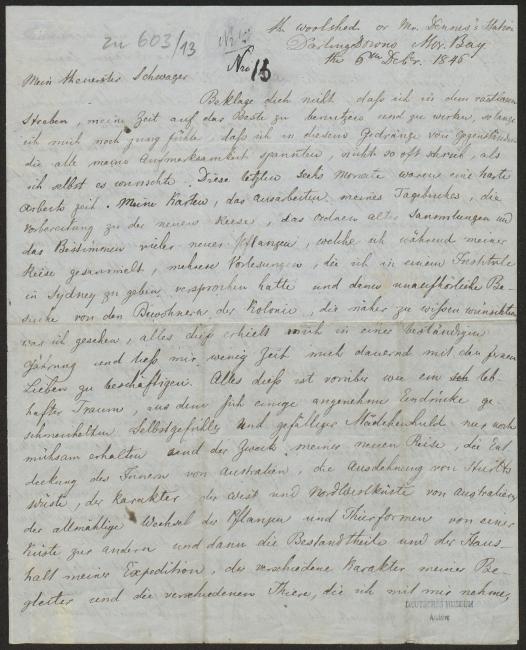 zu 603/13
Nro 13
the woolshed or Mr. Dennis's Station
Darling Downs Mor. Bay
the 6th Decbr. 1846
Mein theuerster Schwager
Beklage dich nicht, daß ich in dem rastlosen
Streben, meine Zeit auf das Beste zu benutzen und zu wirken, so lange
ich mich noch jung fühle, daß ich in diesem Gedränge von Gegenständen
die alle meine Aufmerksamkeit spannten, nicht so oft schrieb, als
ich selbst es wünschte. Diese letzten sechs Monate waren eine harte
Arbeits zeit. Meine Karten, das Ausarbeiten meines Tagebuches, die
Vorbereitung zu der neuen Reise, das Ordnen alter Sammlungen und
das Bestimmen vieler neuer Pflanzen, welche ich während meiner
Reise gesammelt, mehrere Vorlesungen, die ich in einem Institute
in Sydney zu geben versprochen hatte und dann unaufhörliche Be-
suche von den Bewohnern der Kolonie, die näher zu wißen wünschten
was ich gesehen, alles dieß erhielt mich in einer beständigen
Gährung und ließ mir wenig Zeit mich dauernd mit den fernen
Lieben zu beschäftigen. Alles dieß ist vorüber wie ein leb-
hafter Traum, aus dem sich einige angenehme Eindrücke ge-
schmeichelten Selbstgefühls und gefälliger Mädchenhuld nur noch
mühsam erhalten und der Zweck meiner neuen Reise, die Ent
deckung des Innern von Australien, die Ausdehnung von Sturts
Wüste, der Karakter der West und Nordwestküste von Australien
der allmählige Wechsel der Pflanzen und Thierformen von einer
Küste zur andern und dann die Bestandtheile und der Haus-
halt meiner Expedition, der verschiedene Karakter meiner Be-
gleiter und die verschiedenen Thiere, die ich mit mir nehme,
DEUTSCHES MUSEUM
Archiv